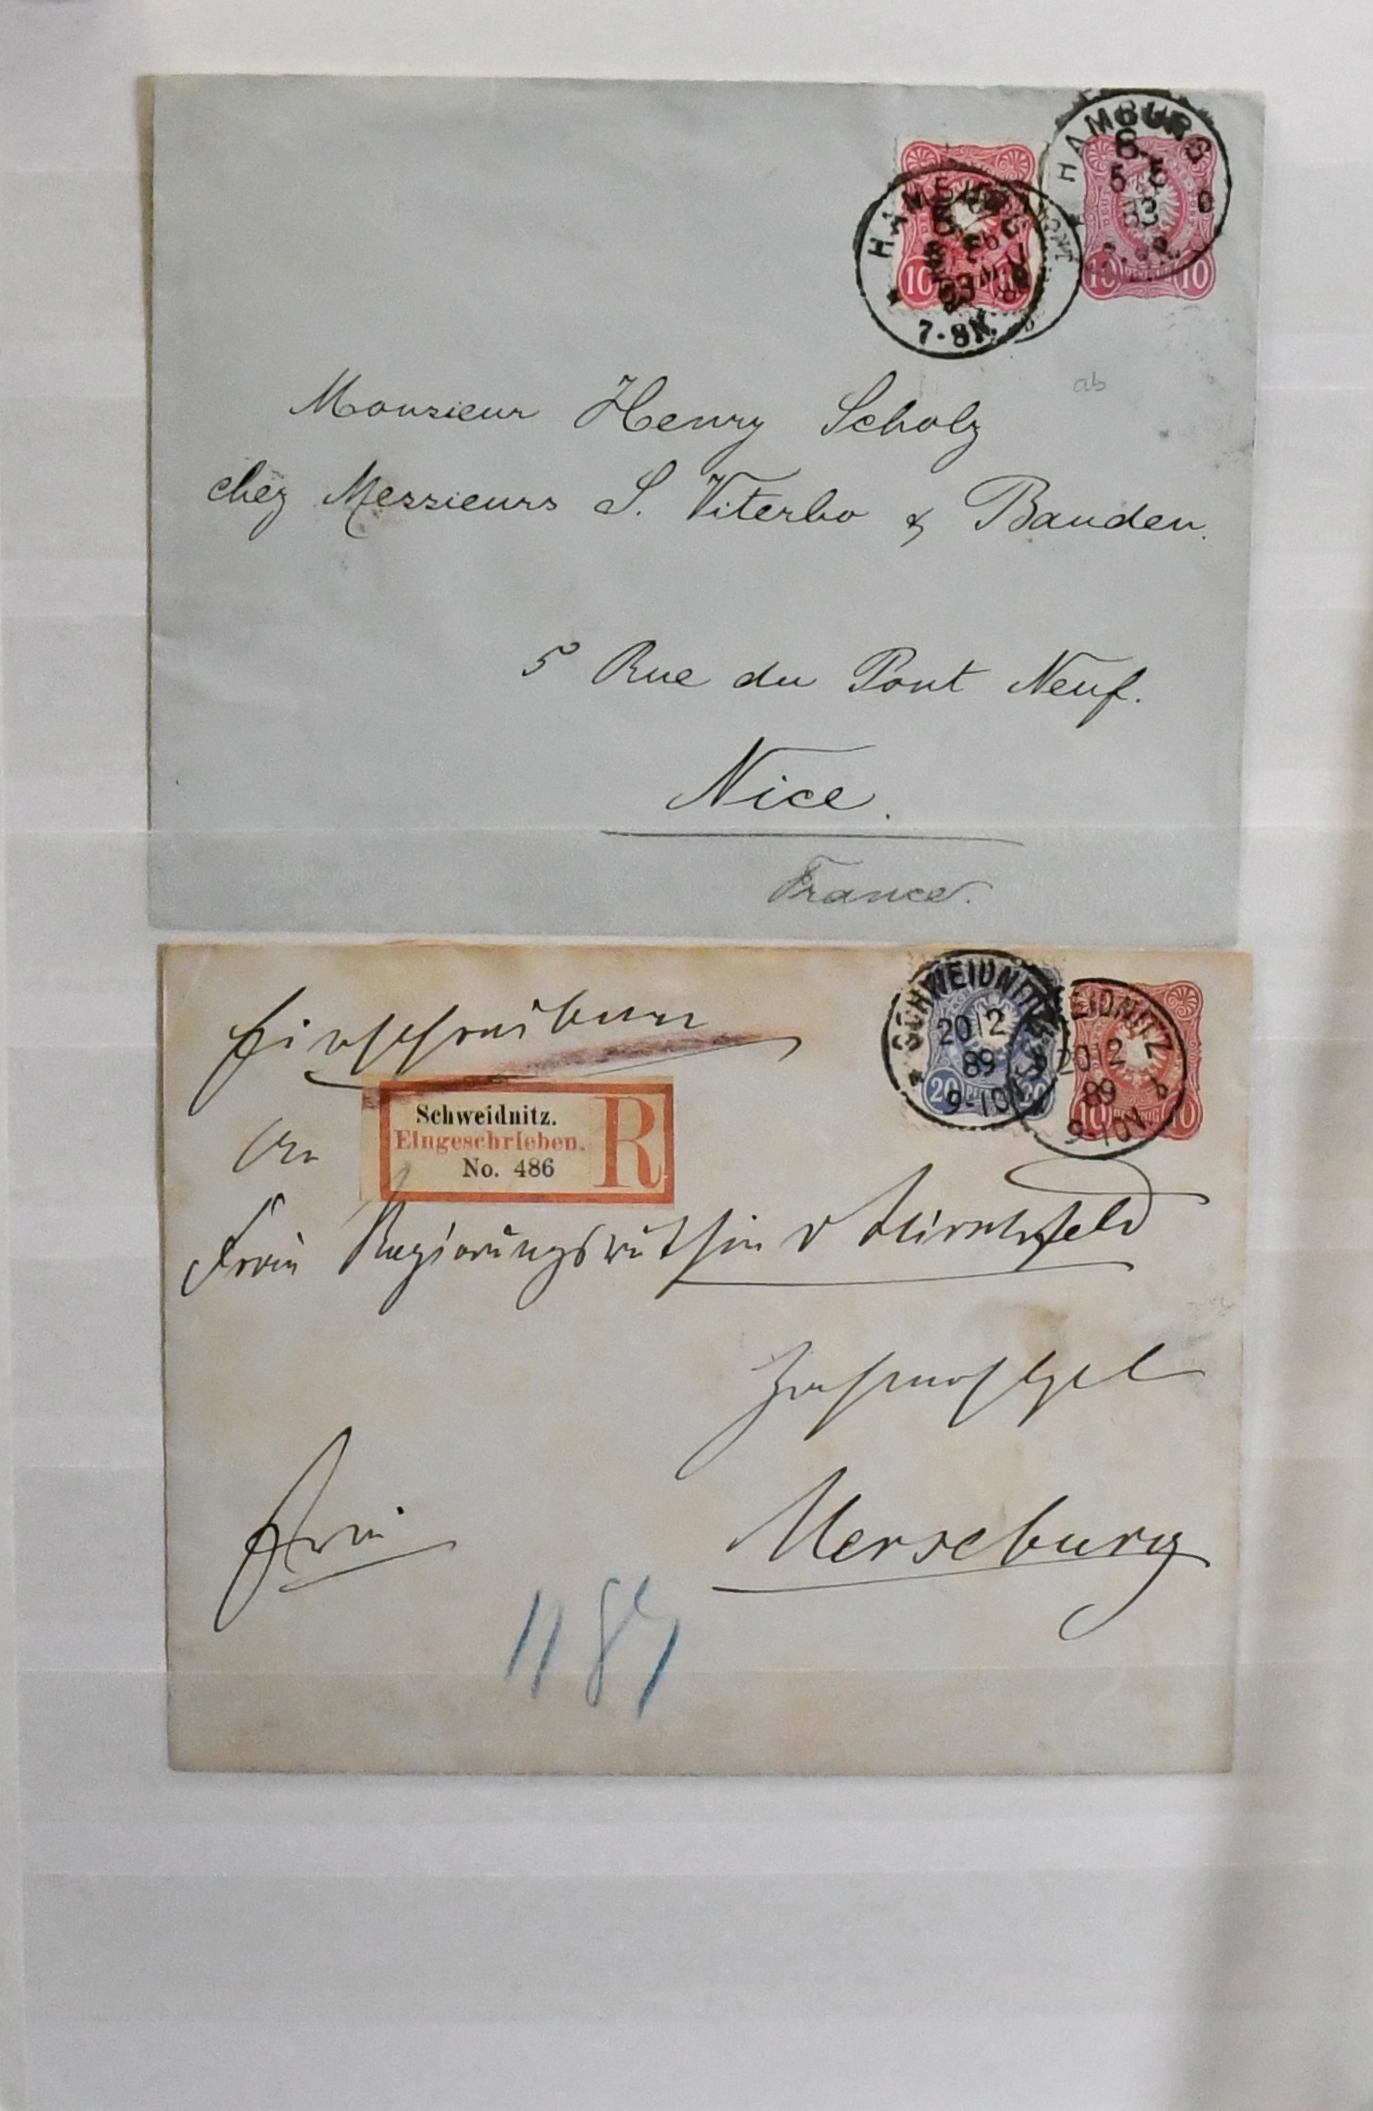 HAMBURG
8.
5 5
83
HAMBURG
7-8N.
10 10
10 PFENNIG 10
ab
Monsieur Henry Scholz
chez Messieurs S. Viterbo & Bauden.
5 Rue du Pont Neuf.
Nice.
France.
SCHWEIDNITZ
20 12
89
9-10
20 PFENNIG 20
SCHWEIDNITZ
20 12
89
b
9-10V.
10 PFENNIG 10
Einschreiben
Schweidnitz.
Eingeschrieben.
No. 486
R
An
Frau Regierungsräthin v Hirschfeld
Merseburg
frei